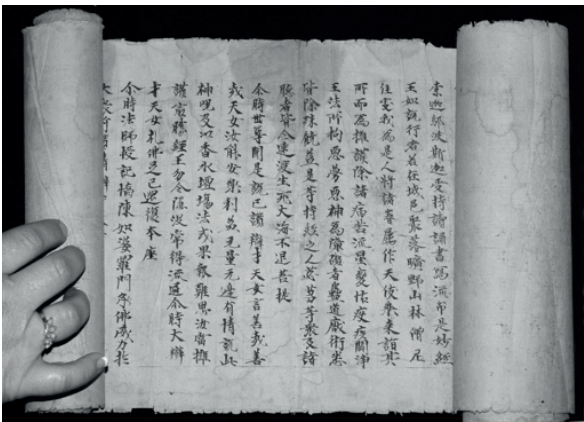 索迦鄔波斯迦受持讀誦書寫流布是妙經
王如說行者若在城邑聚落曠野山林僧尼
住處我為是人將諸眷屬作天伎樂來詣其
所而為擁護除諸病苦流星變怪疫疾鬪諍
王法所拘惡夢惡神為障礙者蠱道厭術悉
皆除殄饒益是等持經之人苾芻等眾及諸
聽者皆令速渡生死大海不退菩提
尒時世尊聞是說已讚辯才天女言善哉善
哉天女汝能安樂利益无量无邊有情說此
神呪及以香水壇場法式果報難思汝當擁
護最勝經王勿令隱沒常得流通尒時大辯
才天女礼佛足已還復本座
尒時法師授記憍陳如婆羅門承佛威力於